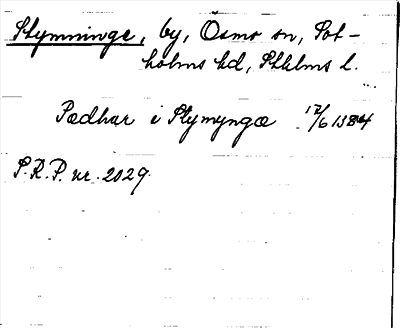 Stymninge, by, Ösmo sn, Sot-
holms hd, Sthlms l.
Pædhar i Stymyngæ 12/6 1384
S.R.P. nr. 2029.